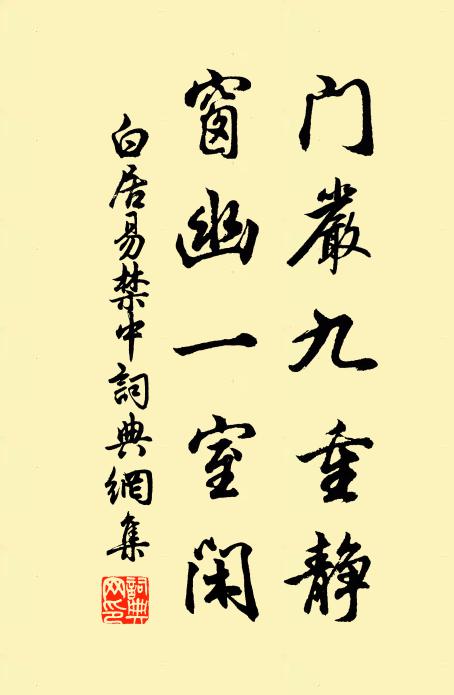 门嚴九重静
窗幽一室闲
白居易禁中詞典網集
詞典网印